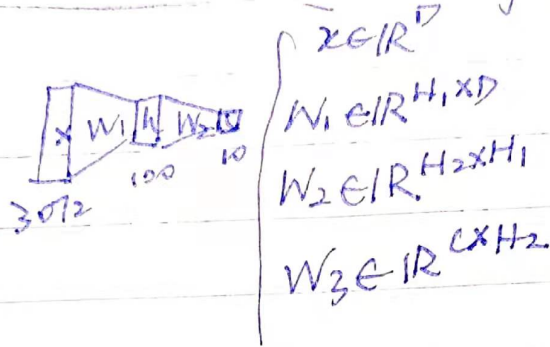 x W₁ h W₂ s
3072 100 10
x ∈ ℝ^D
W₁ ∈ ℝ^{H₁×D}
W₂ ∈ ℝ^{H₂×H₁}
W₃ ∈ ℝ^{C×H₂}